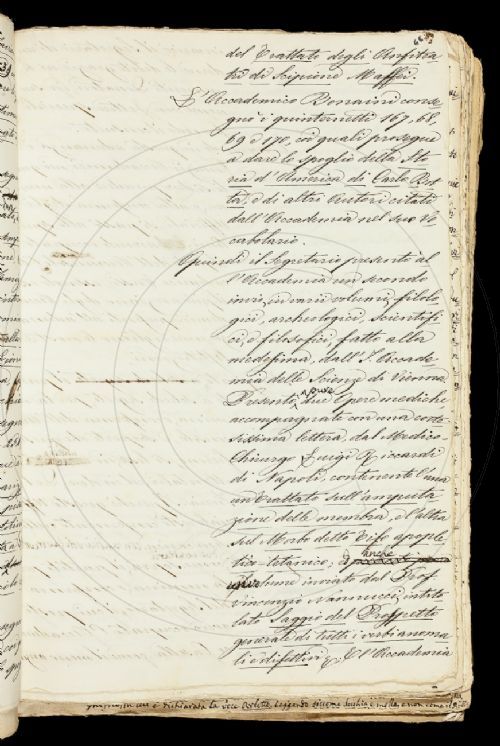 del Trattato degli Anfitea
tri di Scipione Maffei.
L'Accademico Bonaini conse
gnò i quinternetti 167, 68,
69 e 170, coi quali prosegue
a dare lo spoglio della Sto
ria d'America di Carlo Bot
ta, e di altri Autori citati
dall'Accademia nel suo Vo
cabolario.
Quindi il Segretario presentò al
l'Accademia un secondo
invio, in varii volumi, filolo
gici, archeologici, scientifi
ci, e filosofici, fatto alla
medesima, dall'I. Accade
mia delle Scienze di Vienna.
Presentò, pure due Opere mediche,
accompagnate con una corte
sissima lettera, dal Medico-
Chirurgo Luigi Riccardi
di Napoli, contenente l'una
un Trattato sull'amputa
zione delle membra, e l'altra
sul Morbo detto Tifo apople
tico-tetanico; e anche
volume inviato dal Prof.
Vincenzio Nannucci, intito
lato Saggio del Prospetto
generale di tutti i verbi anoma
li e difettivi &. E l'Accademia